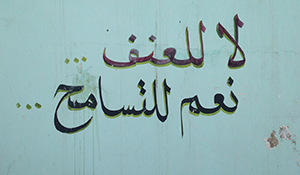 لا للعنف ...
نعم للتسامح ...